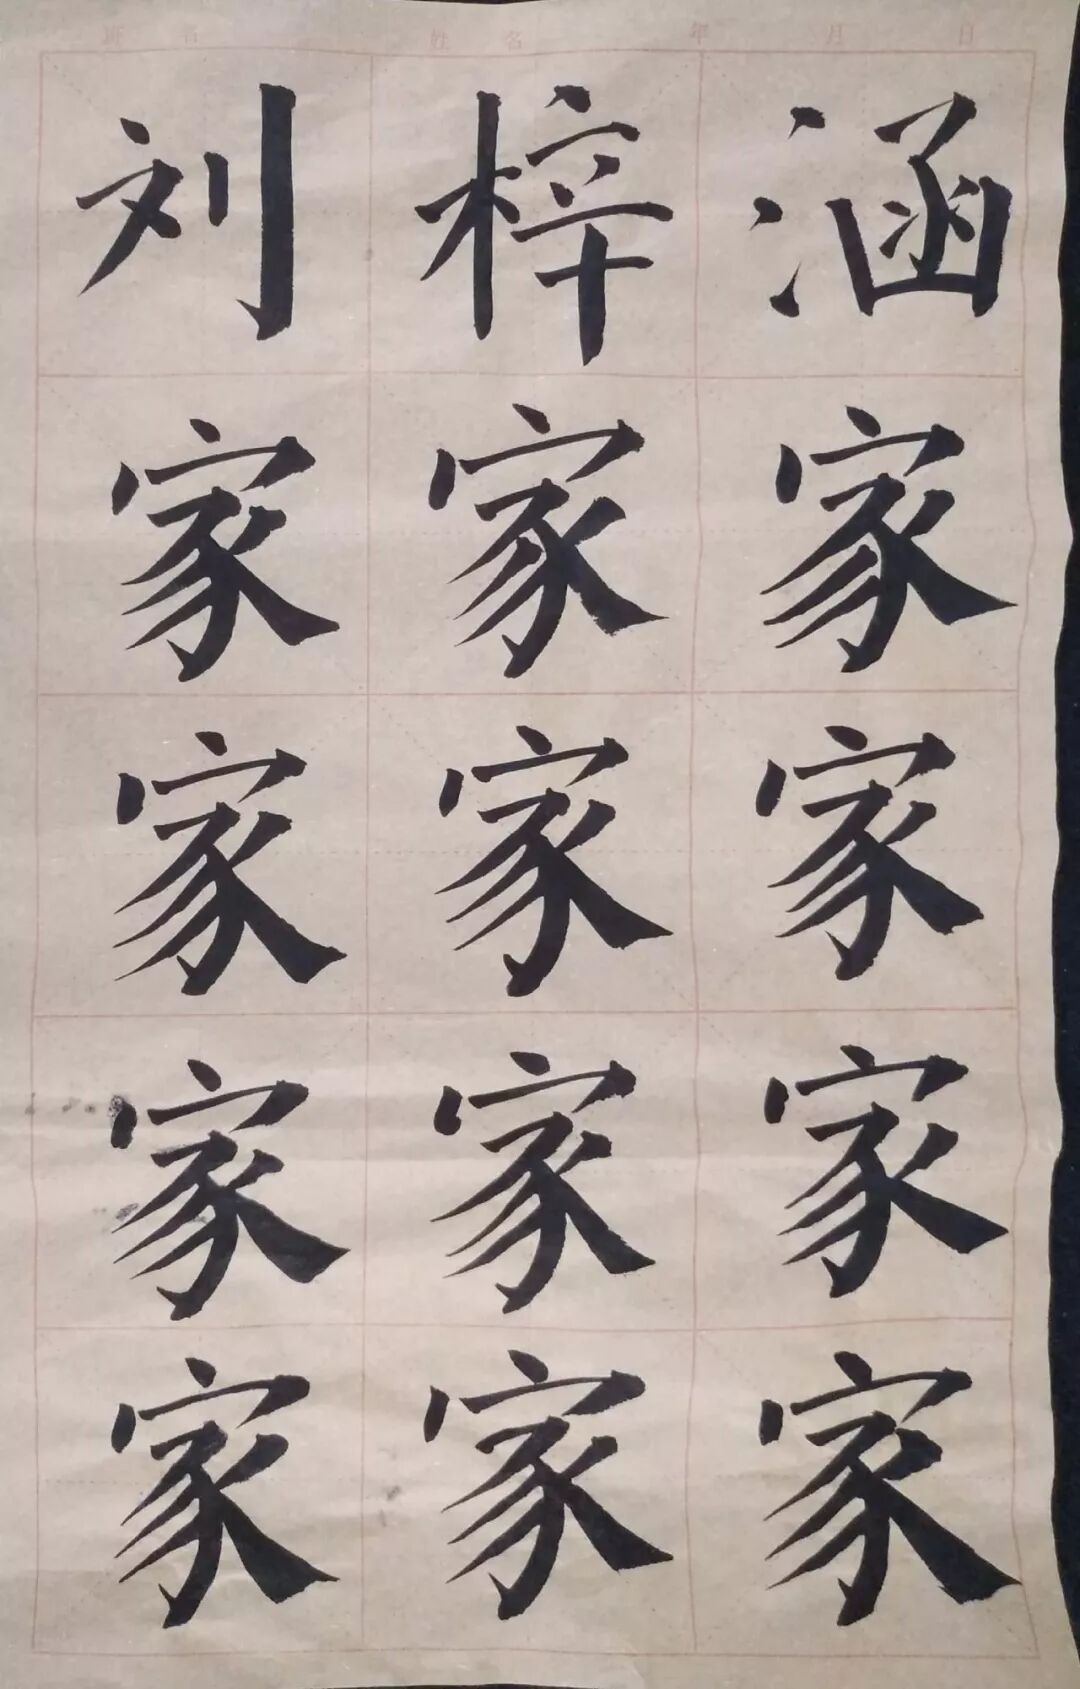 班名 姓名 年 月 日
刘梓涵
家家家
家家家
家家家
家家家